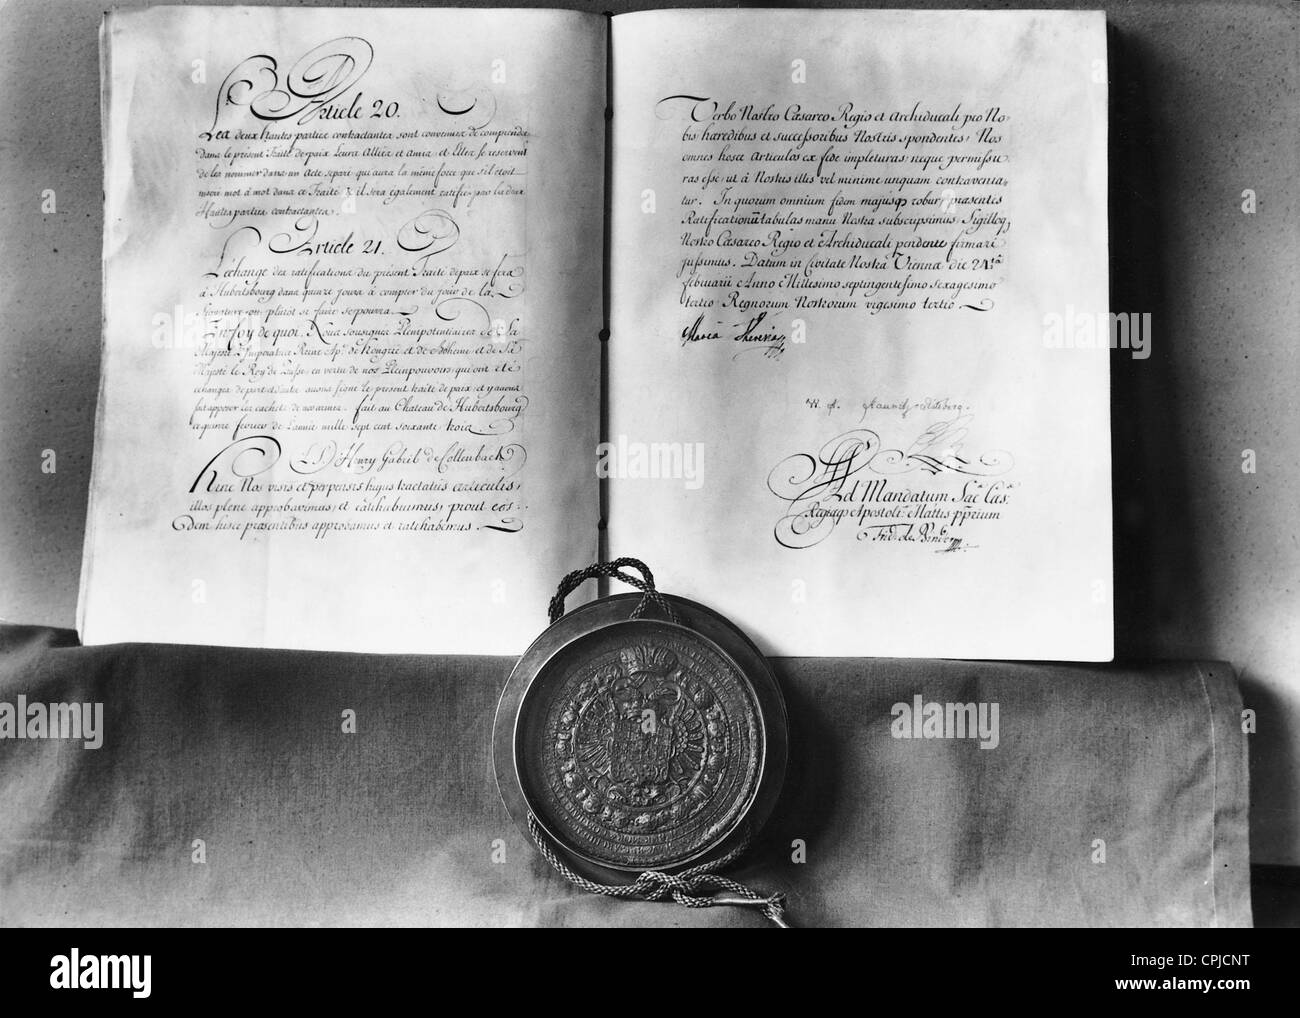 Article 20.
Les deux hautes parties contractantes sont convenues de comprendre
dans le présent Traité de paix Leurs Alliés et Amis, et Elles se reservent
de les nommer dans un Acte separé qui aura la même force que s'il étoit
inseré mot à mot dans ce Traité & il sera également ratifié par les deux
Hautes parties contractantes.
Article 21.
L'échange des ratifications du présent Traité de paix se fera
à Hubertsbourg dans quinze jours à compter du jour de la
Signature ou plutôt si faire se pourra.
En foy de quoi Nous soussignés Plenipotentiaires de Sa
Majesté l'Imperatrice Reine Ap. de Hongrie et de Boheme et de Sa
Majesté le Roy de Prusse, en vertu de nos Pleinpouvoirs, qui ont été
echangés de part et d'autre avons signé le present traité de paix, et y avons
fait apposer les cachets de nos armes. fait au Chateau de Hubertsbourg
ce quinze fevrier de l'année mille sept cent soixante trois.
L.S. Henry Gabriel de Collenbach
Hinc Nos visis et perpensis hujus tractatus articulis,
illos plene approbavimus, et ratihabuimus, prout eos-
dem hisce praesentibus approbamus et ratihabemus.
Verbo Nostro Cæsareo Regio et Archiducali pro No-
bis hæredibus et successoribus Nostris spondentes, Nos
omnes hosce Articulos ex fide impleturas, neque permissu-
ras esse, ut à Nostris illis vel minime unquam contravenia-
tur. In quorum omnium fidem majusq robur, præsentes
Ratificationũ tabulas manu Nostra subscripsimus, Sigilloq
Nostro Cæsareo Regio et Archiducali pendente firmari
jussimus. Datum in Civitate Nostra Vienna die 24.ta
februarii Anno Millesimo septingentesimo sexagesimo
tertio Regnorum Nostrorum vigesimo tertio.
Maria Theresia
Ad Mandatum Sac. Cæs.
Regiaq et Apostoli. Mattis pprium
Frid. de Binder
alamy
Image ID: CPJCNT
www.alamy.com